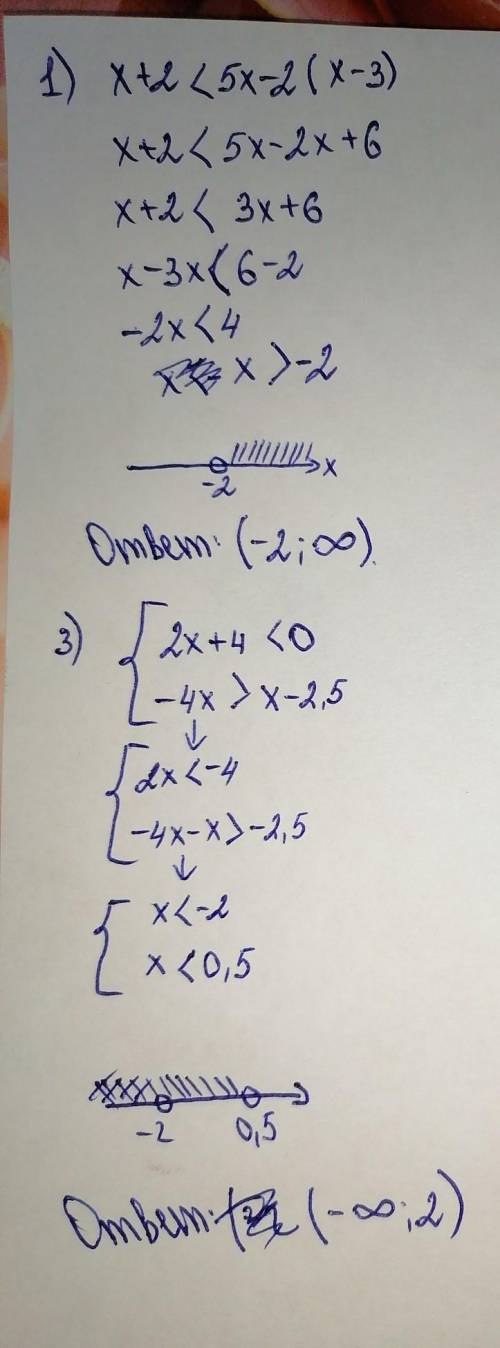 1) x+2<5x-2(x-3)
x+2<5x-2x+6
x+2< 3x+6
x-3x<6-2
-2x<4
x>-2
-2 x
Ответ: (-2; ∞).
3) { 2x+4<0
-4x>x-2,5
↓
{ 2x<-4
-4x-x>-2,5
↓
{ x<-2
x<0,5
-2 0,5
Ответ: (-∞; 2)